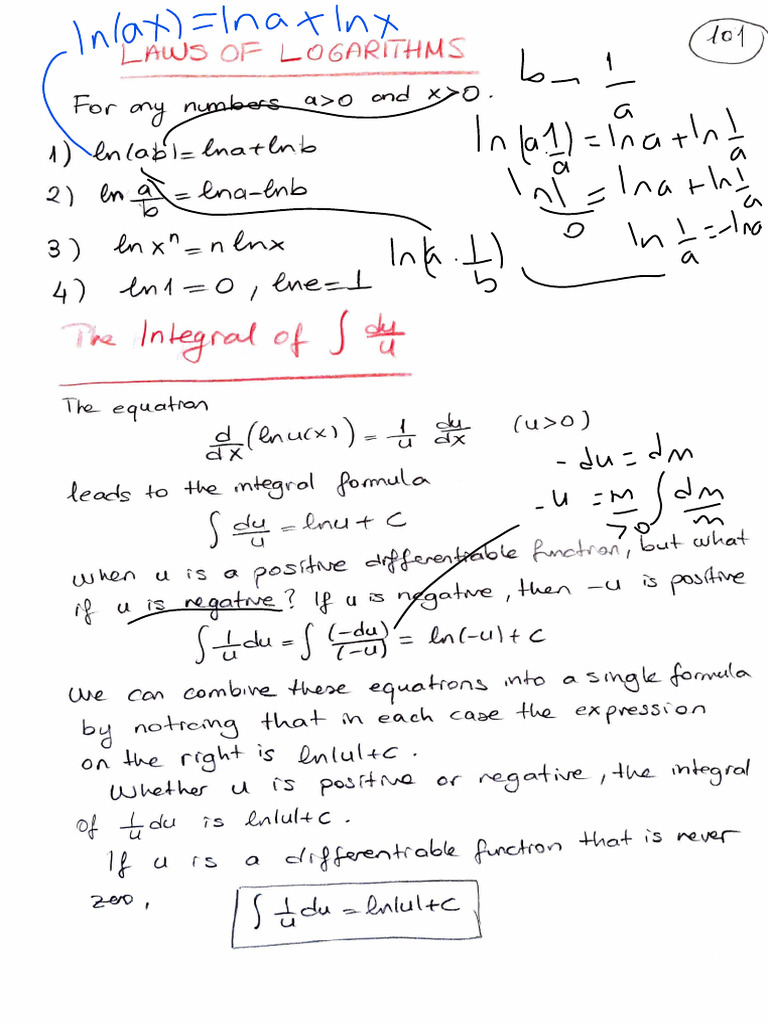 ln(ax) = lna + lnx
101
LAWS OF LOGARITHMS
For any numbers a>0 and x>0.
1) ln(ab) = lna+lnb
2) ln a/b = lna-lnb
3) ln xⁿ = n lnx
4) ln1 = 0 , lne = 1
b = 1/a
ln(a.1/a) = lna + ln 1/a
ln1 = lna + ln 1/a
0
ln 1/a = -lna
ln(a . 1/b)
The Integral of ∫ du/u
The equation
d/dx (lnu(x)) = 1/u du/dx (u>0)
leads to the integral formula
∫ du/u = lnu + C
-du = dm
-u = m ∫ dm/m
>0
when u is a positive differentiable function, but what
if u is negative? If u is negative, then -u is positive
∫ 1/u du = ∫ (-du)/(-u) = ln(-u) + C
We can combine these equations into a single formula
by noticing that in each case the expression
on the right is ln|u|+C.
Whether u is positive or negative, the integral
of 1/u du is ln|u|+C.
If u is a differentiable function that is never
zero,
∫ 1/u du = ln|u|+C